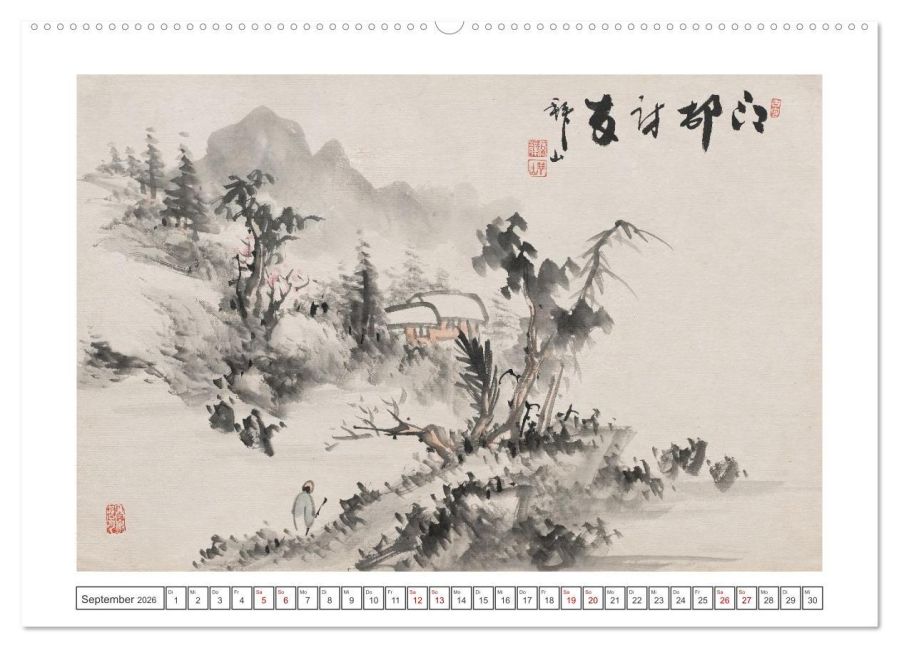 江 友
山
Di Mi Do Fr Sa So Mo Di Mi Do Fr Sa So Mo Di Mi Do Fr Sa So Mo Di Mi Do Fr Sa So Mo Di Mi
September 2026 1 2 3 4 5 6 7 8 9 10 11 12 13 14 15 16 17 18 19 20 21 22 23 24 25 26 27 28 29 30